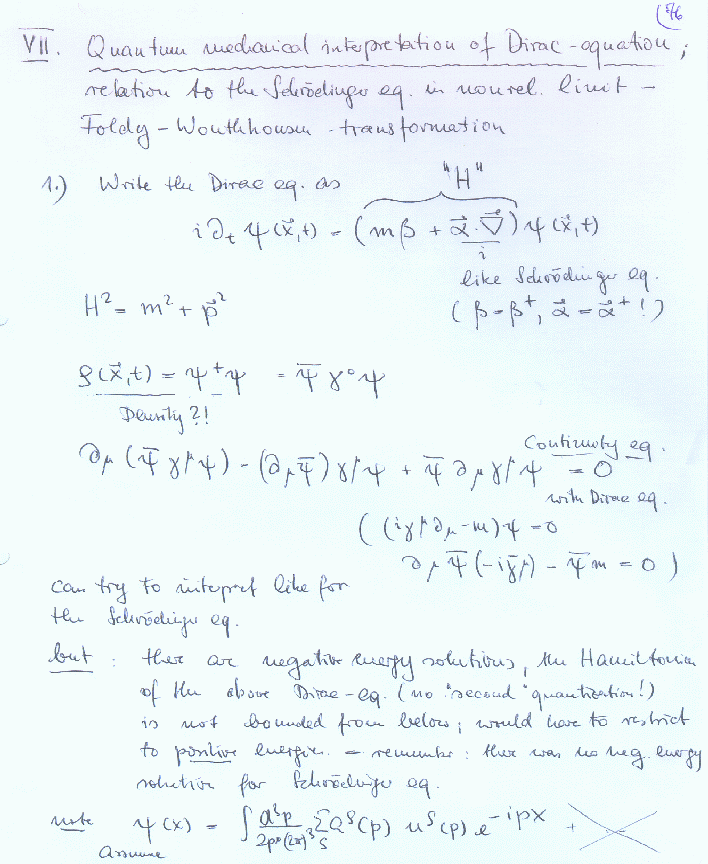 76
VII. Quantum mechanical interpretation of Dirac-equation;
relation to the Schrödinger eq. in nonrel. limit –
Foldy-Wouthhousen-transformation
"H"
1.) Write the Dirac eq. as
i∂_t ψ(x⃗,t) = (mβ + α⃗·∇⃗/i) ψ(x⃗,t)
like Schrödinger eq.
H² = m² + p⃗²
(β = β⁺, α⃗ = α⃗⁺!)
ρ(x⃗,t) = ψ⁺ψ = ψ̄γ⁰ψ
Density?!
Continuity eq.
∂_μ(ψ̄γ^μψ) = (∂_μψ̄)γ^μψ + ψ̄∂_μγ^μψ = 0
with Dirac eq.
((iγ^μ∂_μ - m)ψ = 0
∂_μψ̄(-iγ^μ) - ψ̄m = 0)
can try to interpret like for
the Schrödinger eq.
but: there are negative energy solutions, the Hamiltonian
of the above Dirac-eq. (no "second" quantization!)
is not bounded from below; would have to restrict
to positive energies. – remember: there was no neg. energy
solution for Schrödinger eq.
note ψ(x) = ∫ d³p/2p⁰(2π)³ Σ_s a^s(p) u^s(p) e^{-ipx} +
Assume